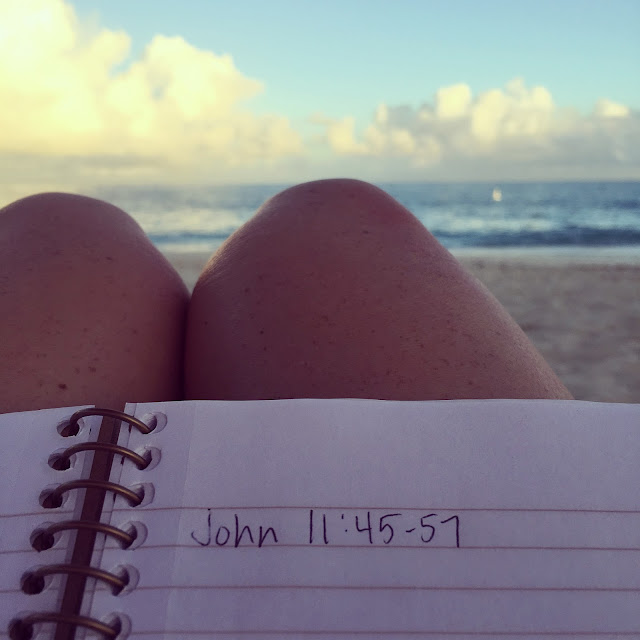 John 11:45-57